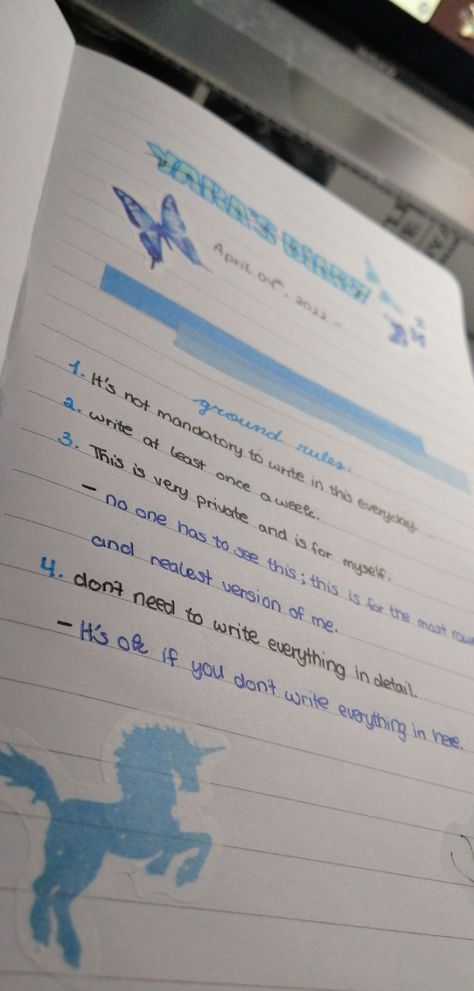 YARA'S DIARY
April 04th, 2022 -
ground rules.
1. It's not mandatory to write in this everyday.
2. write at least once a week.
3. This is very private and is for myself.
- no one has to see this; this is for the most raw
and realest version of me.
4. don't need to write everything in detail.
- It's ok if you don't write everything in here.